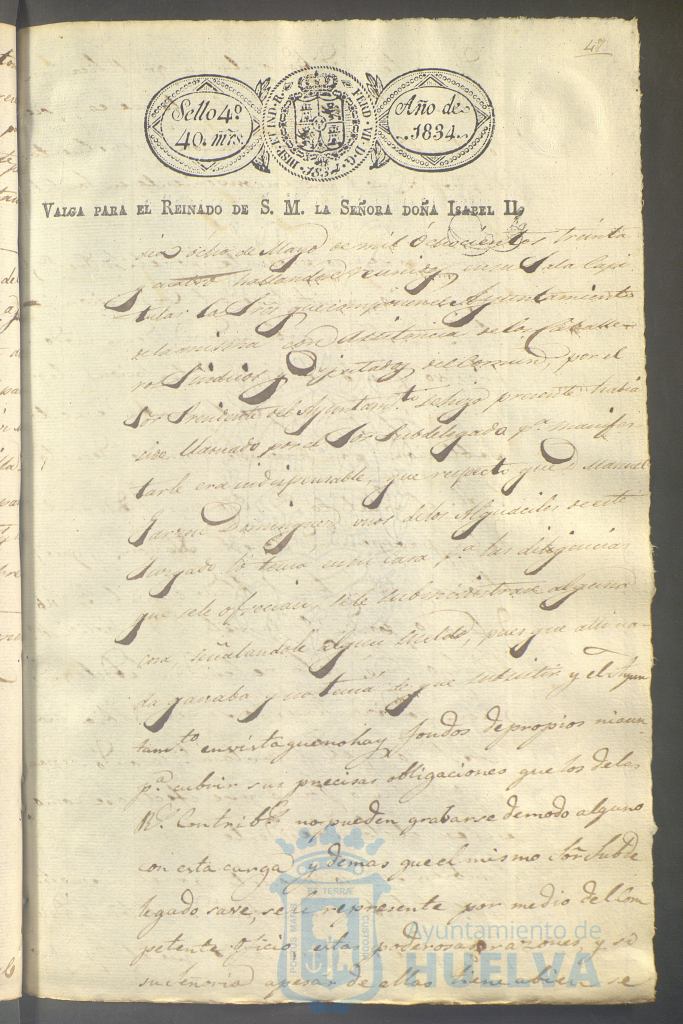 48
Sello 4º
40. mrs
HISP. ET IND. R. FERD. VII D. G. 1834
Año de
1834.
VALGA PARA EL REINADO DE S. M. LA SEÑORA DOÑA ISABEL II.
dia ocho de Mayo de mil ochocientos treinta
y cuatro hallandose reunidos en su Sala Capi
tular los Sres que componen el Ayuntamiento
de la misma con Assistencia de los Caballe
ros Sindicos y Diputados del Comun, por el
Sor Presidente del Ayuntamto. se hizo presente habia
sido llamado por el Sor Subdelegado pa. manifes
tarle era indispensable, que respecto que D. Manuel
Garcia Dominguez unos de los Alguaciles de este
Juzgado lo tenia en su casa pa. las diligencias
que se le ofrecian, se le subministrase alguna
cosa, señalandole algun sueldo, pues que alli na
da ganaba y no tenia de que subsistir y el Ayun
tamto. en vista que no hay fondos de propios ni aun
pa. cubrir sus precisas obligaciones que los de las
Rs. Contribs. no pueden grabarse de modo alguno
con esta carga y demas que el mismo Sor Subde
legado save, se le represente por medio del Com
petente oficio estas poderosas razones, y si
su Señoria apesar de ellas tiene abien se
PORTUS MARIS ET TERRAE CUSTODIA
Ayuntamiento de
HUELVA